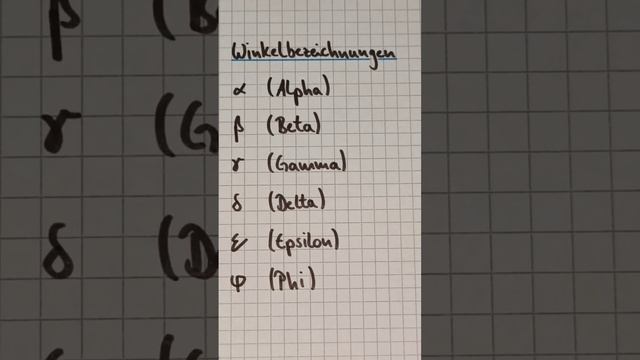 Winkelbezeichnungen
α (Alpha)
β (Beta)
γ (Gamma)
δ (Delta)
ε (Epsilon)
φ (Phi)